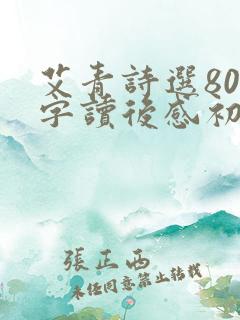 艾青詩選80
字讀後感初
張正西
未經同意禁止轉載